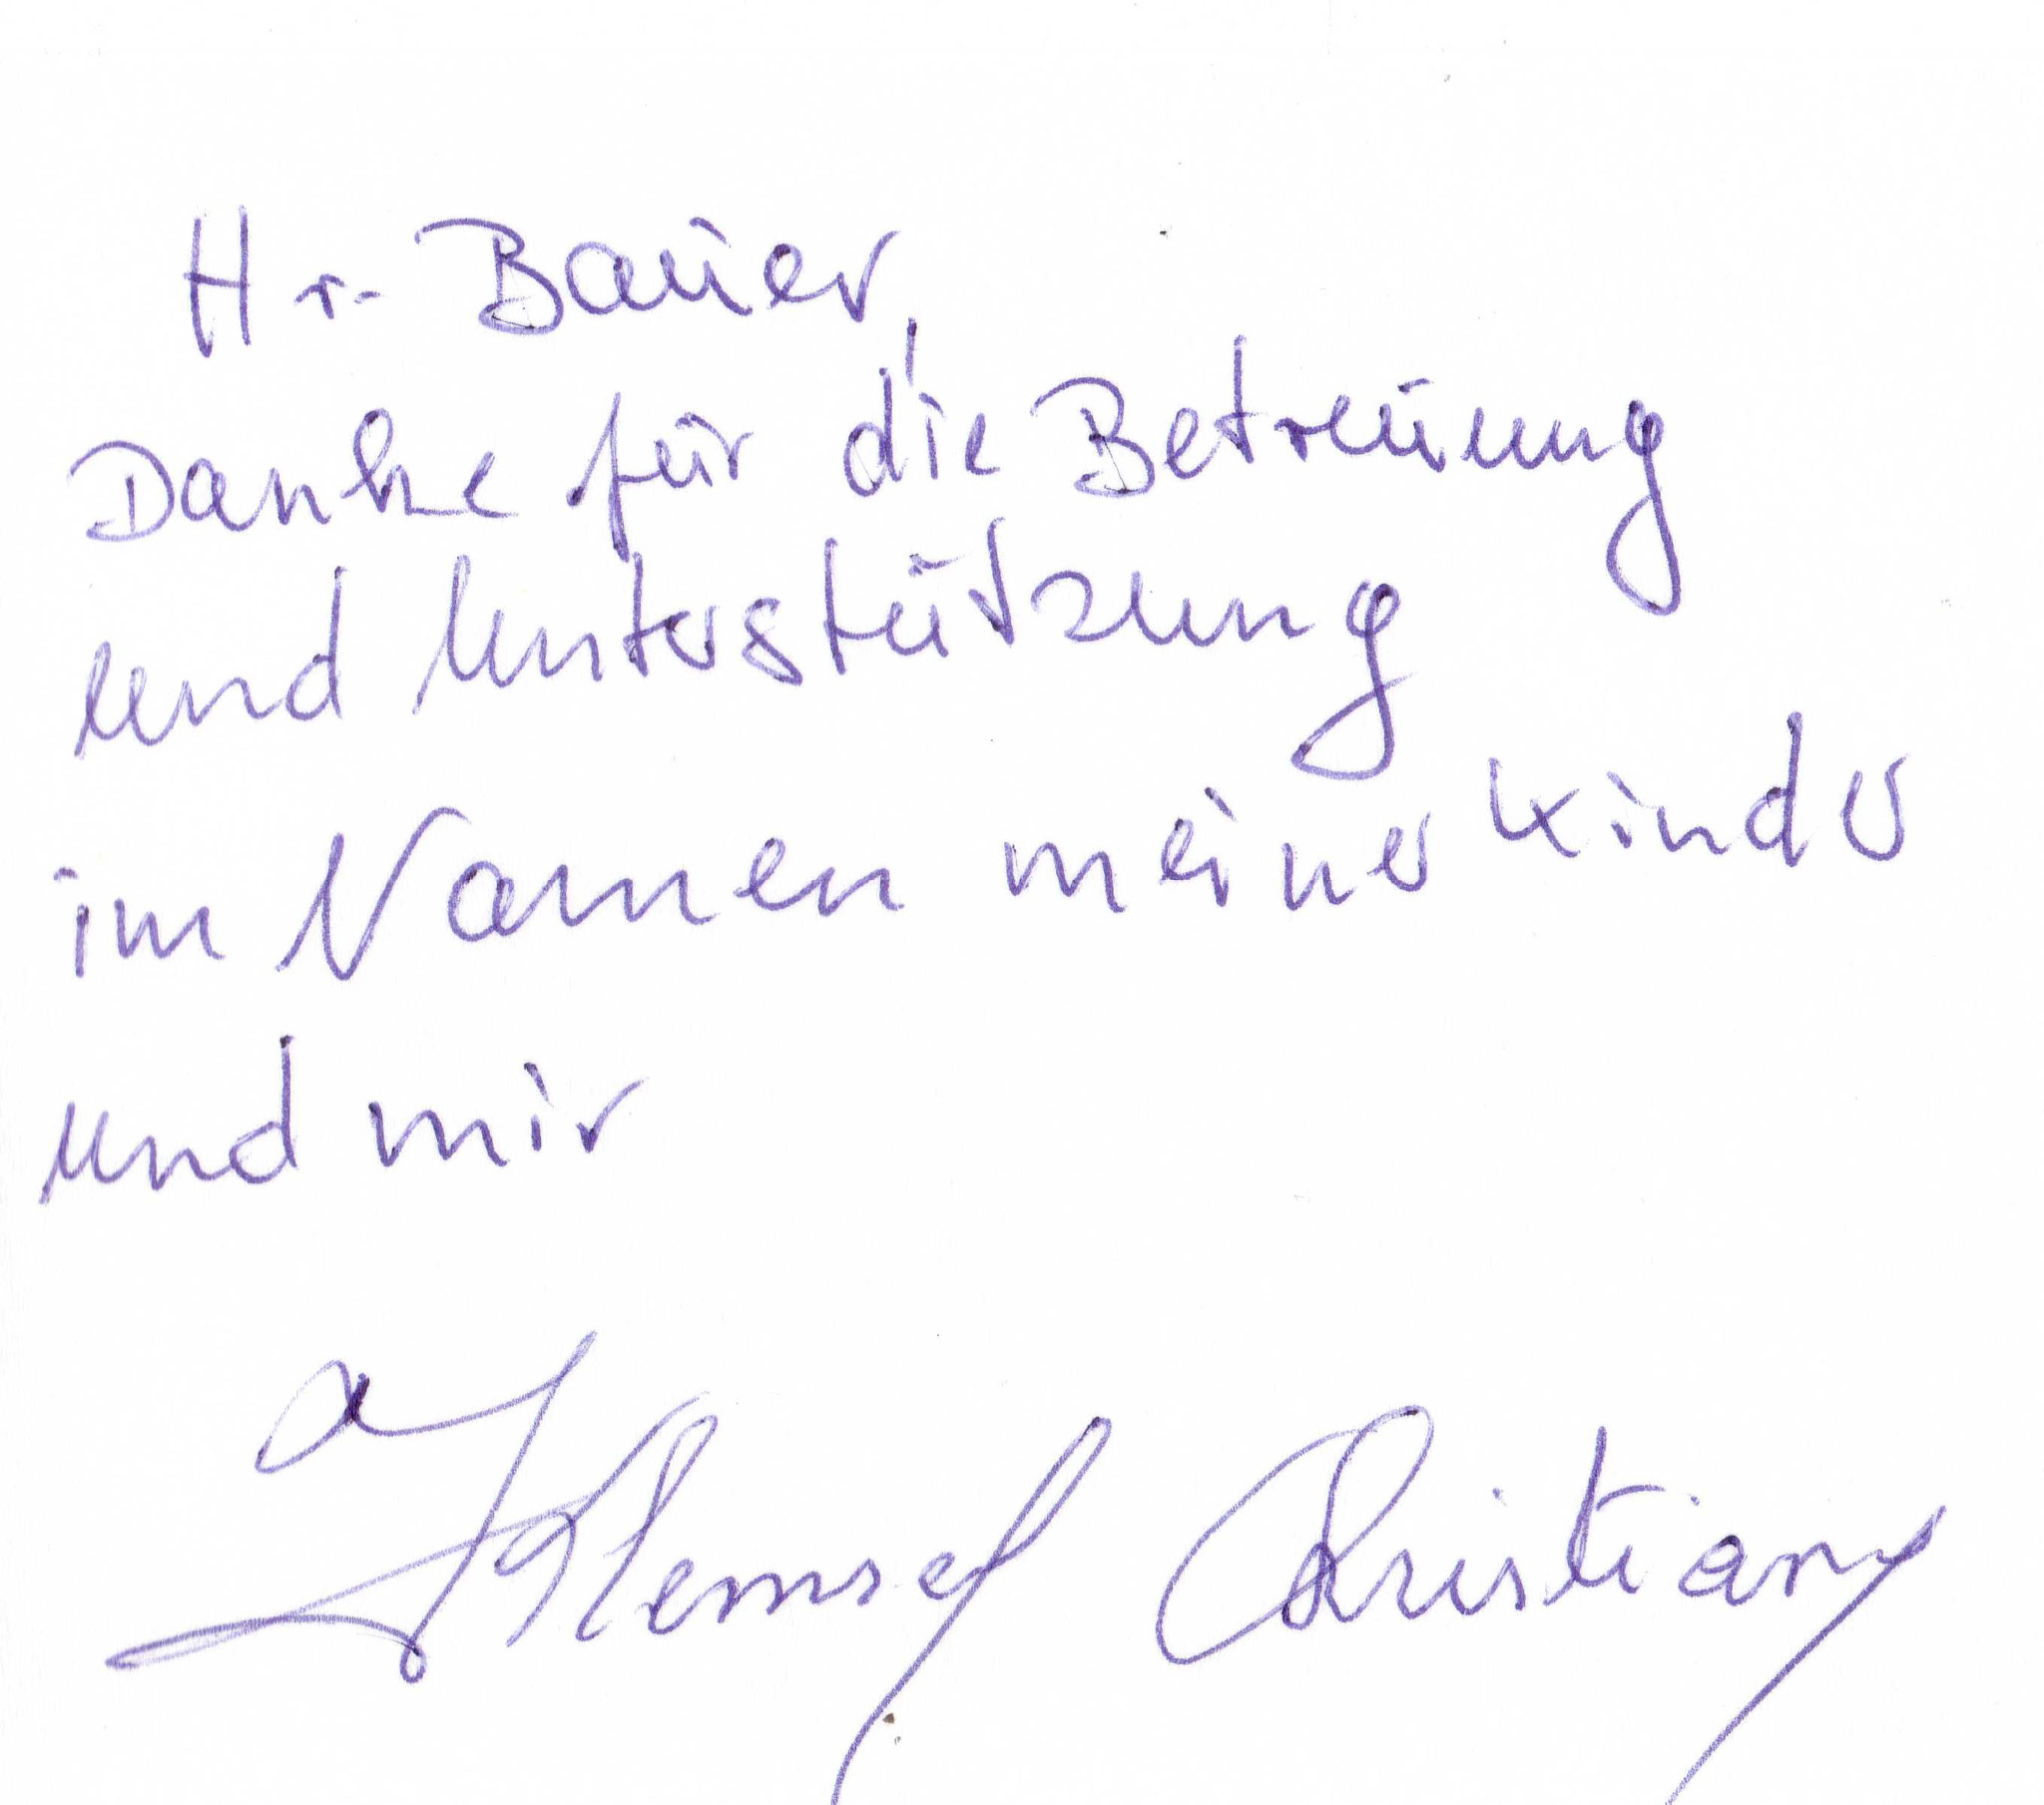 Hr. Bauer,
Danke für die Betreuung
und Unterstützung
im Namen meiner Kinder
und mir
Christian